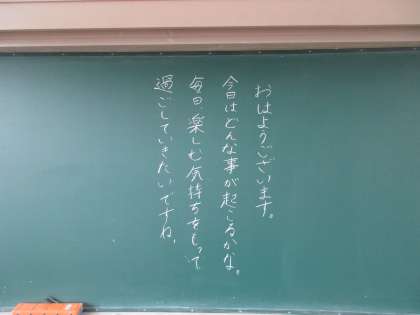 おはようございます。
今日はどんな事が起こるかな。
毎日、楽しむ気持ちをもって
過ごしていきたいですね。